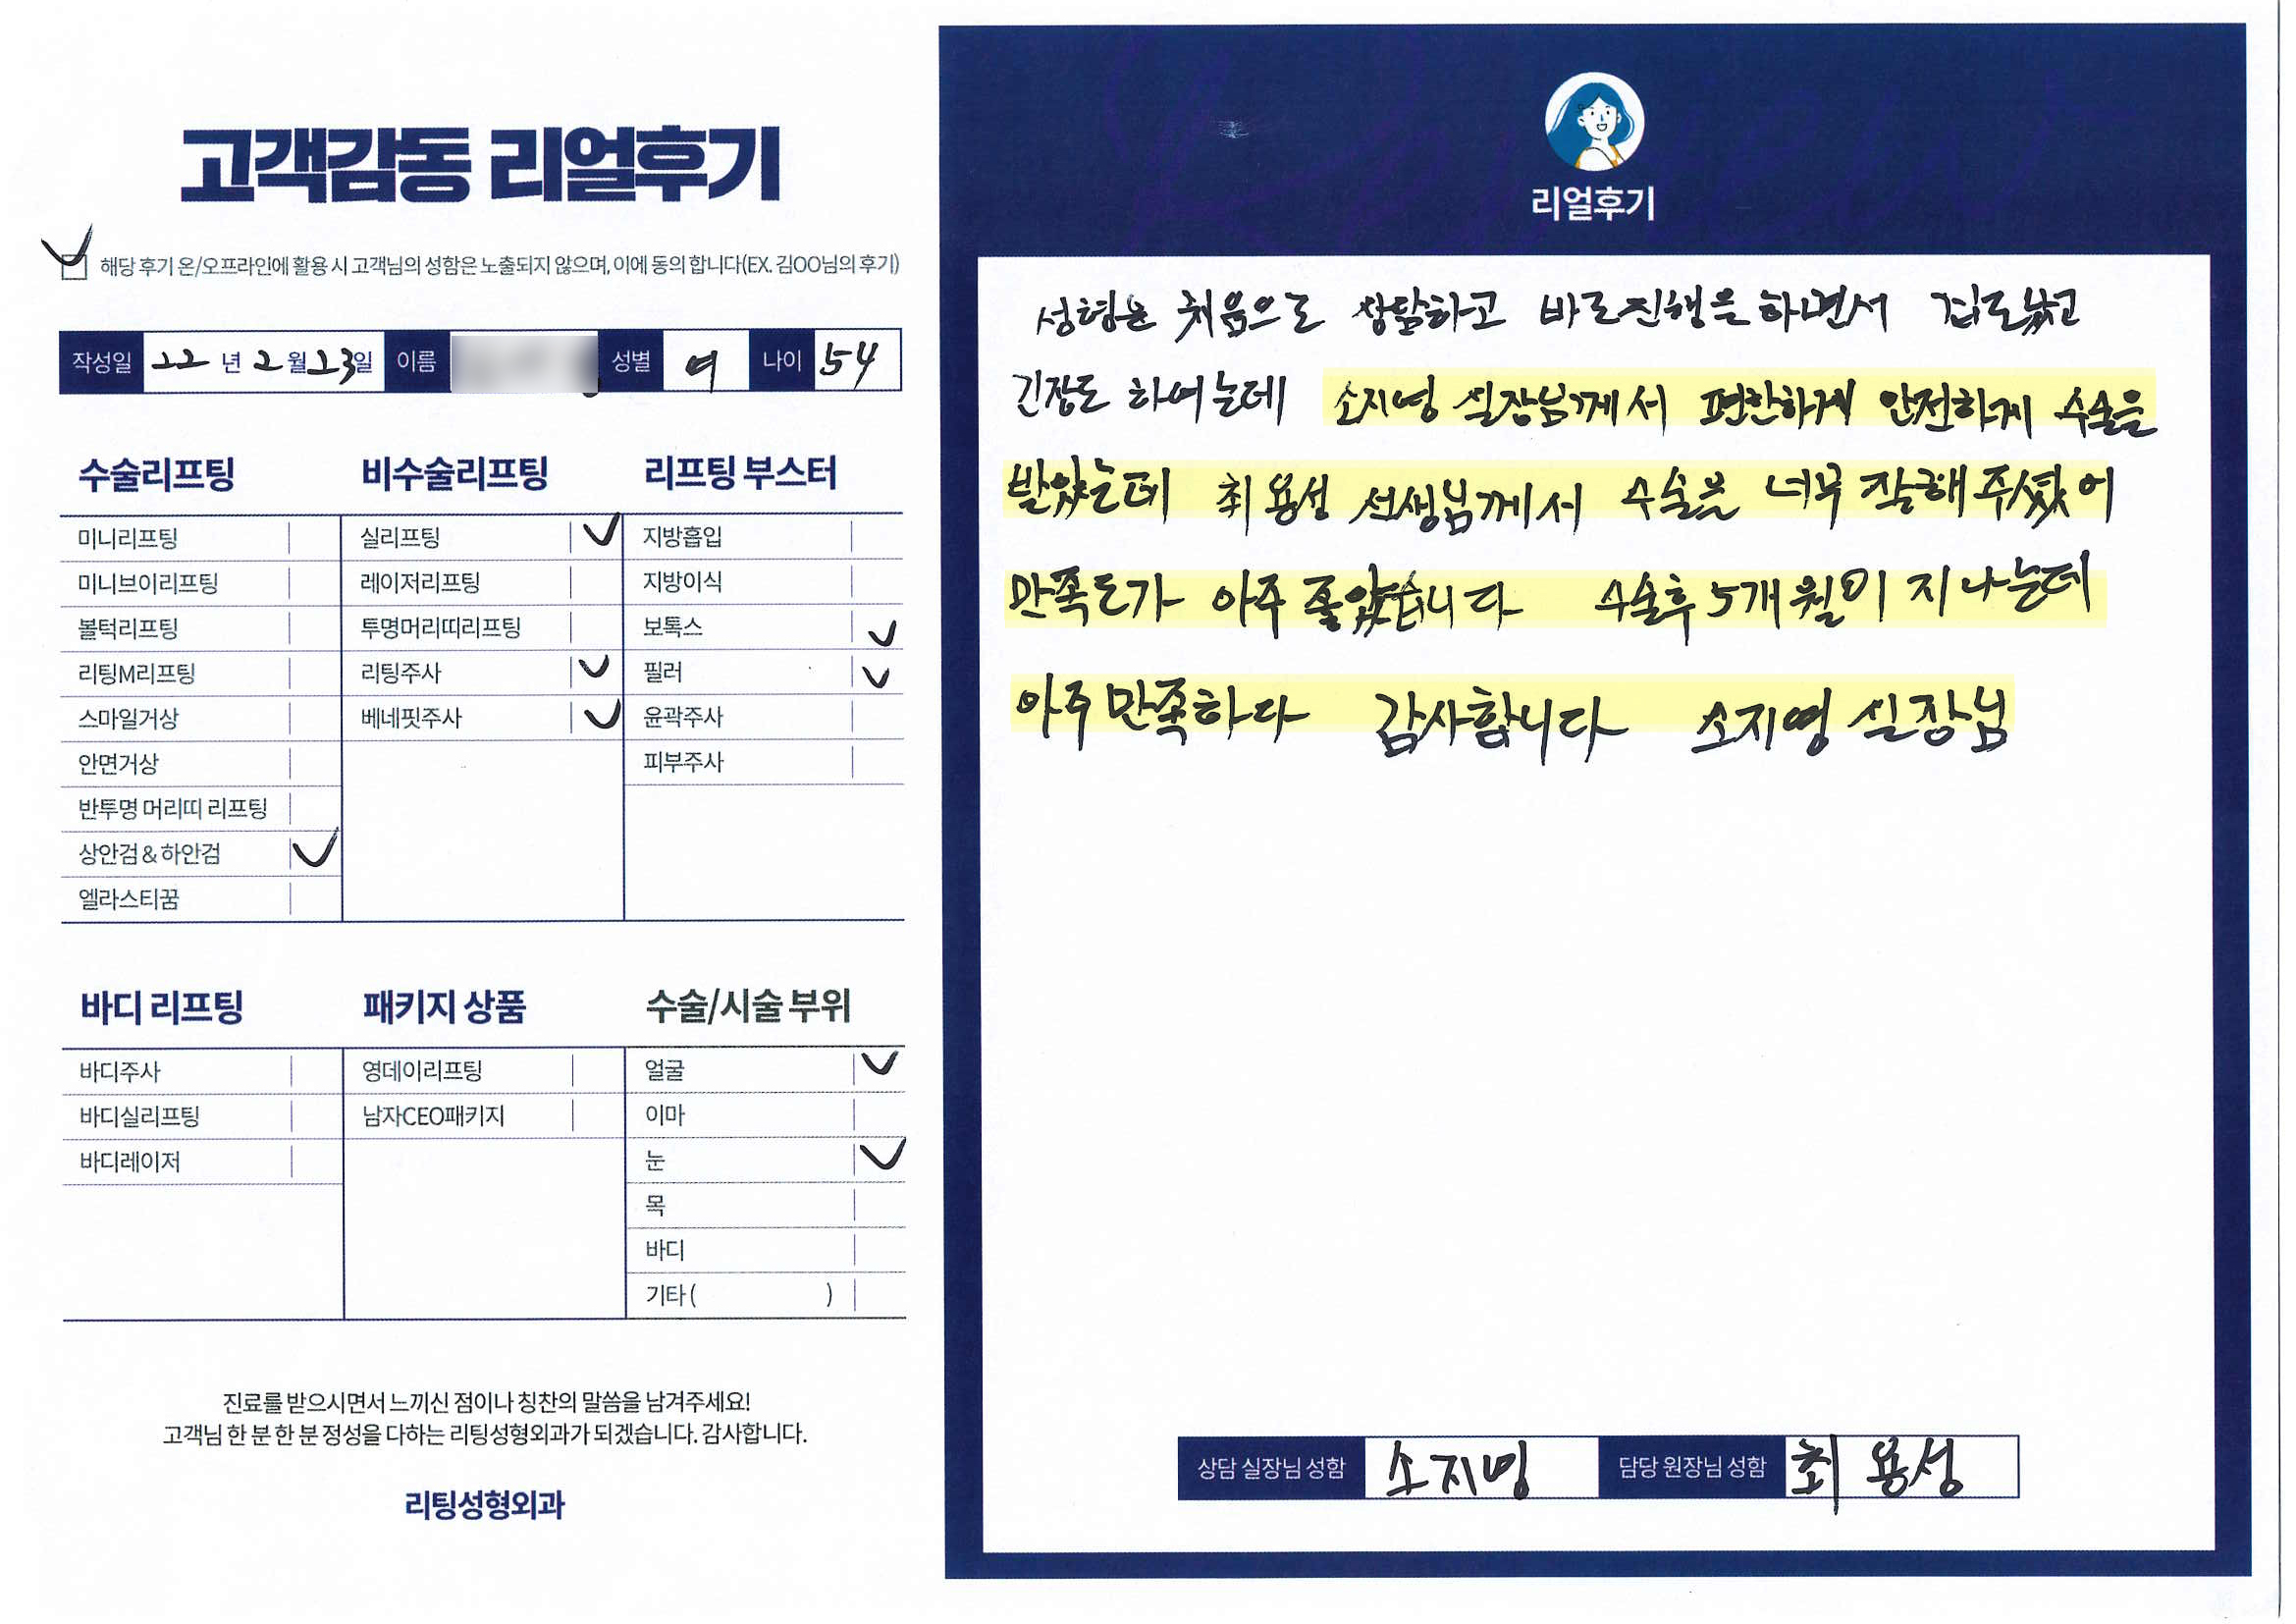 고객감동 리얼후기
해당 후기 온/오프라인에 활용 시 고객님의 성함은 노출되지 않으며, 이에 동의 합니다(EX. 김OO님의 후기)
작성일 22 년 2 월 23 일 이름 성별 여 나이 54
수술리프팅
미니리프팅
미니브이리프팅
볼턱리프팅
리팅M리프팅
스마일거상
안면거상
반투명 머리띠 리프팅
상안검 & 하안검
엘라스티꿈
비수술리프팅
실리프팅
레이저리프팅
투명머리띠리프팅
리팅주사
베네핏주사
리프팅 부스터
지방흡입
지방이식
보톡스
필러
윤곽주사
피부주사
바디 리프팅
바디주사
바디실리프팅
바디레이저
패키지 상품
영데이리프팅
남자CEO패키지
수술/시술 부위
얼굴
이마
눈
목
바디
기타 ( )
진료를 받으시면서 느끼신 점이나 칭찬의 말씀을 남겨주세요!
고객님 한 분 한 분 정성을 다하는 리팅성형외과가 되겠습니다. 감사합니다.
리팅성형외과
리얼후기
성형은 처음으로 상담하고 바로진행을 하면서
긴장도 하여는데 소지영 실장님께서 편한하게 안전하게 수술을
받았는데 최용성 선생님께서 수술을 너무 잘해주셨어
만족도가 아주 좋았습니다 수술후 5개월이 지나는데
아주 만족하다 감사합니다 소지영 실장님
상담 실장님 성함 소지영 담당 원장님 성함 최용성